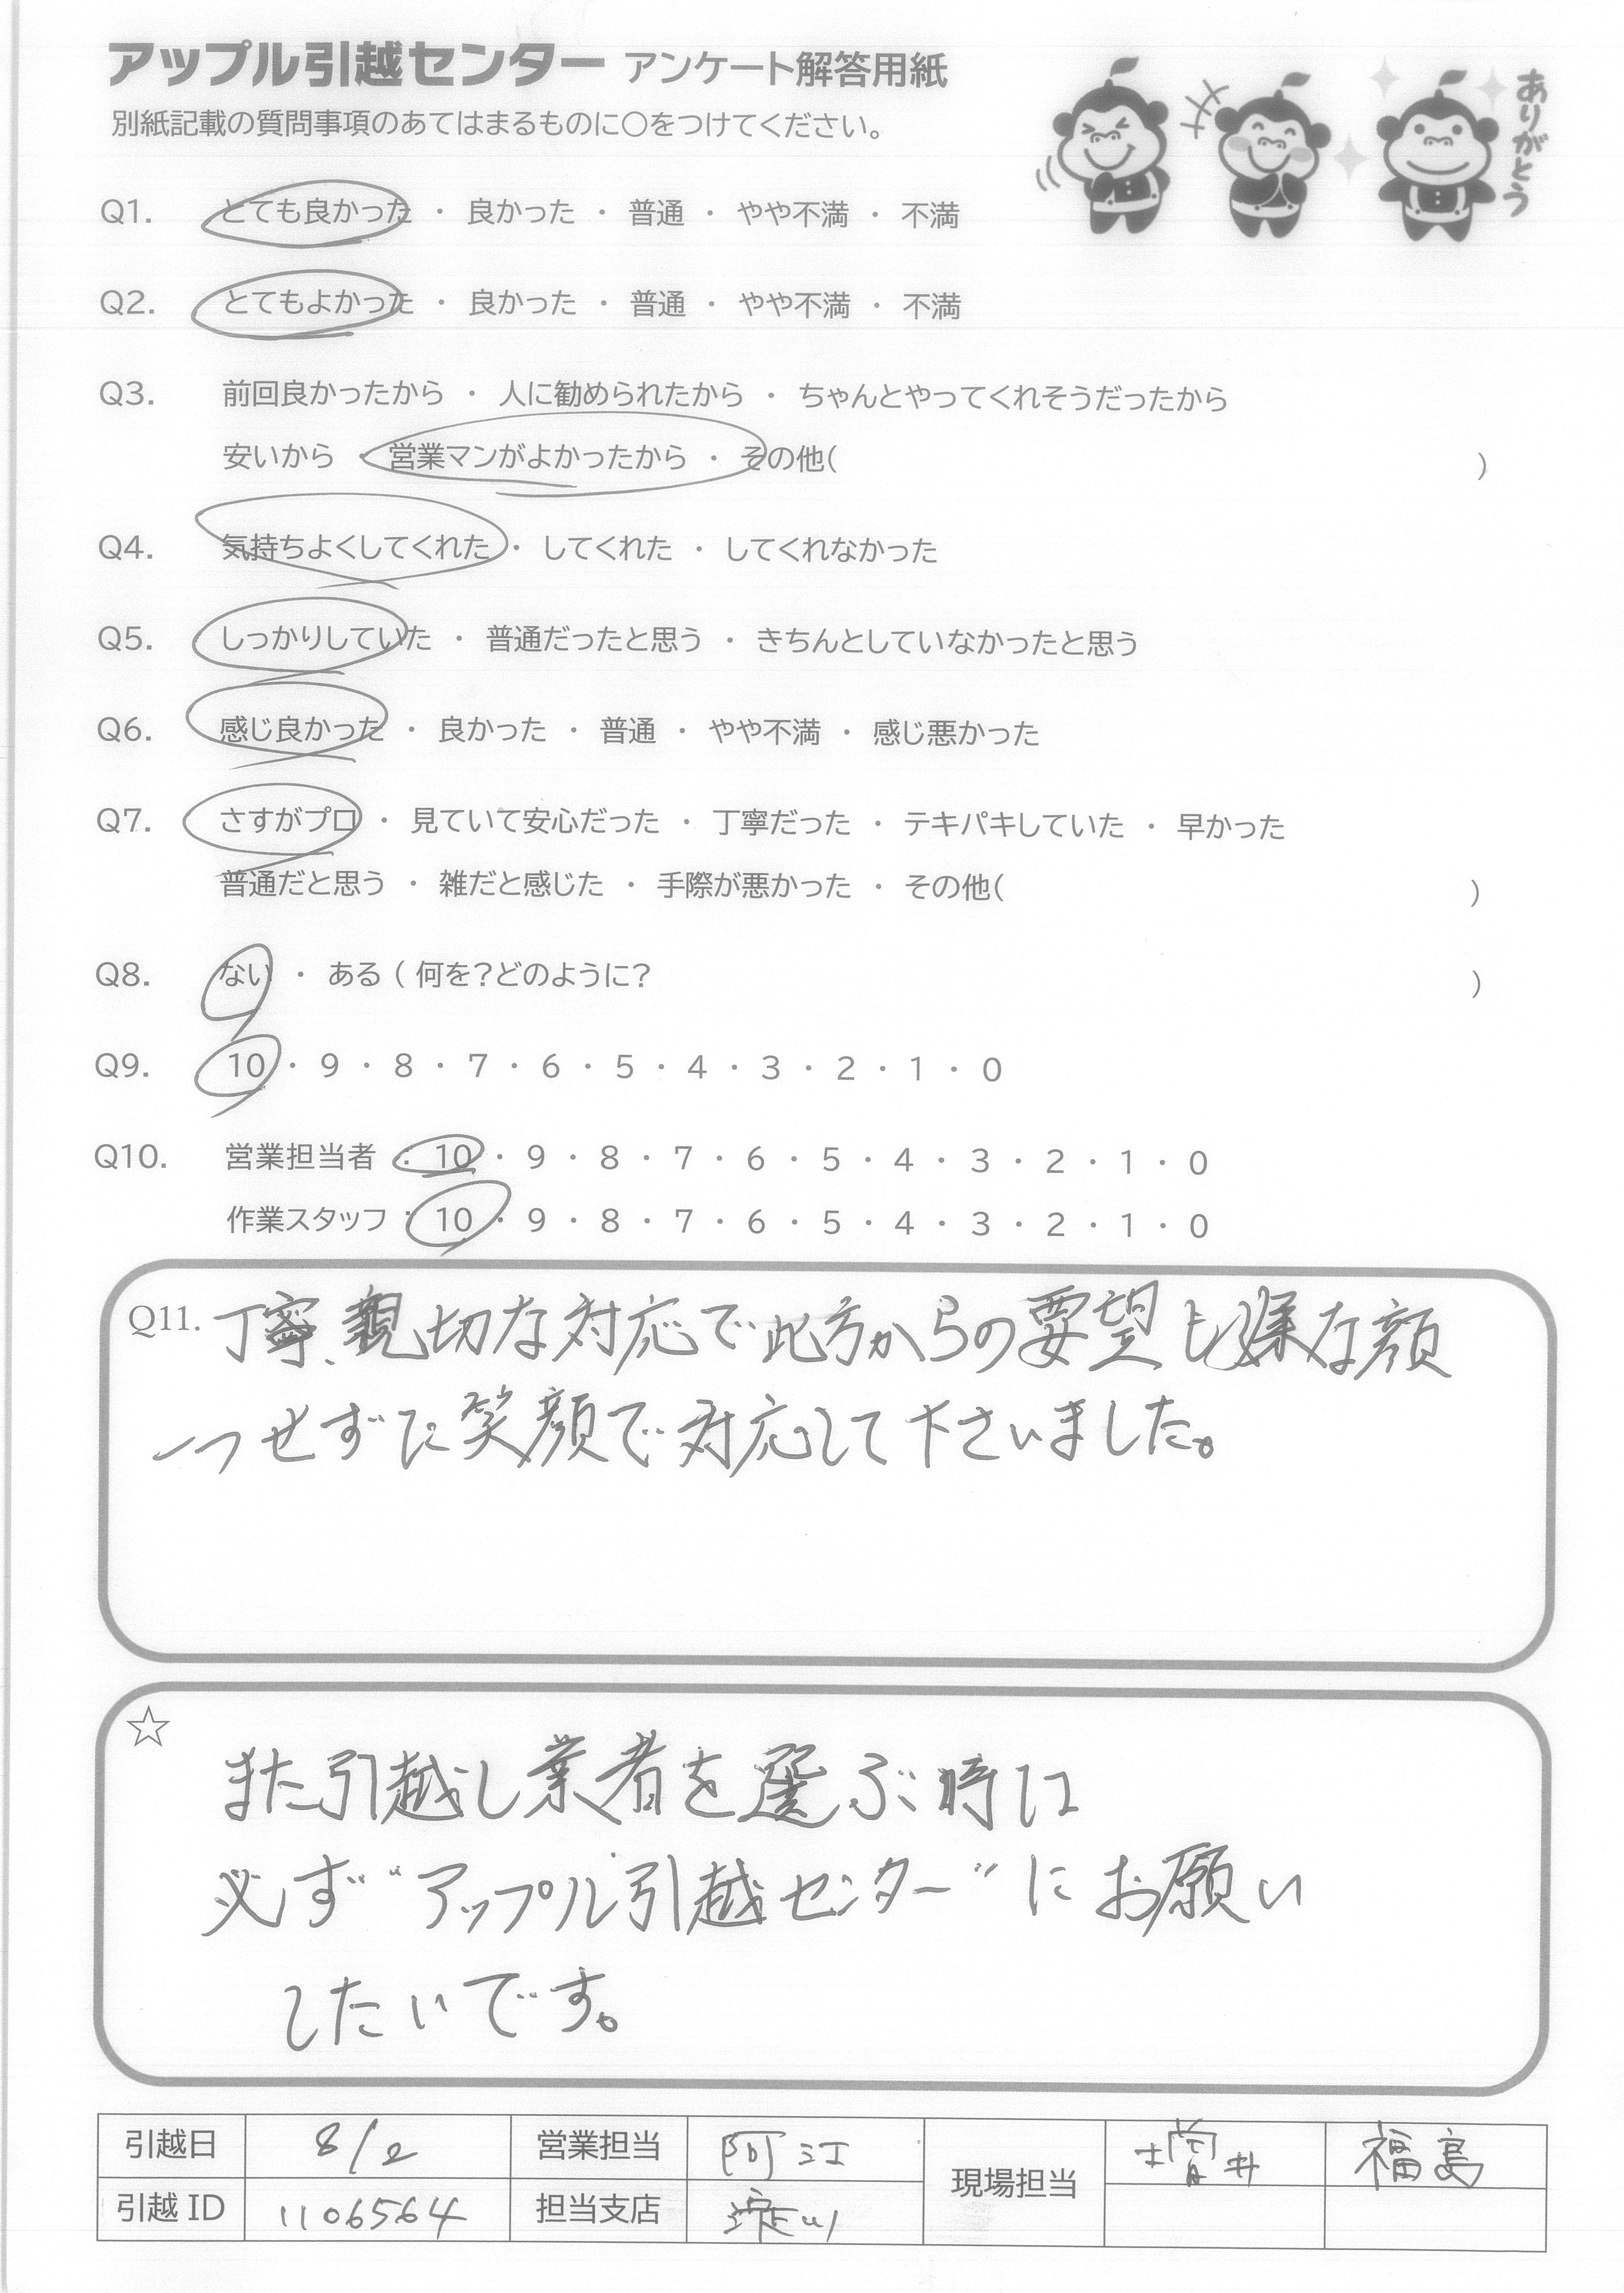 アップル引越センター アンケート解答用紙
別紙記載の質問事項のあてはまるものに○をつけてください。
ありがとう
Q1. とても良かった ・ 良かった ・ 普通 ・ やや不満 ・ 不満
Q2. とてもよかった ・ 良かった ・ 普通 ・ やや不満 ・ 不満
Q3. 前回良かったから ・ 人に勧められたから ・ ちゃんとやってくれそうだったから
安いから ・ 営業マンがよかったから ・ その他( )
Q4. 気持ちよくしてくれた ・ してくれた ・ してくれなかった
Q5. しっかりしていた ・ 普通だったと思う ・ きちんとしていなかったと思う
Q6. 感じ良かった ・ 良かった ・ 普通 ・ やや不満 ・ 感じ悪かった
Q7. さすがプロ ・ 見ていて安心だった ・ 丁寧だった ・ テキパキしていた ・ 早かった
普通だと思う ・ 雑だと感じた ・ 手際が悪かった ・ その他( )
Q8. ない ・ ある ( 何を?どのように? )
Q9. 10 ・ 9 ・ 8 ・ 7 ・ 6 ・ 5 ・ 4 ・ 3 ・ 2 ・ 1 ・ 0
Q10. 営業担当者 : 10 ・ 9 ・ 8 ・ 7 ・ 6 ・ 5 ・ 4 ・ 3 ・ 2 ・ 1 ・ 0
作業スタッフ : 10 ・ 9 ・ 8 ・ 7 ・ 6 ・ 5 ・ 4 ・ 3 ・ 2 ・ 1 ・ 0
Q11. 丁寧、親切な対応で此方からの要望も嫌な顔
一つせずに笑顔で対応して下さいました。
☆
また引越し業者を選ぶ時は
必ず"アップル引越センター"にお願い
したいです。
引越日 8/2 営業担当 阿江 現場担当 井 福島
引越 ID 1106564 担当支店 淀川